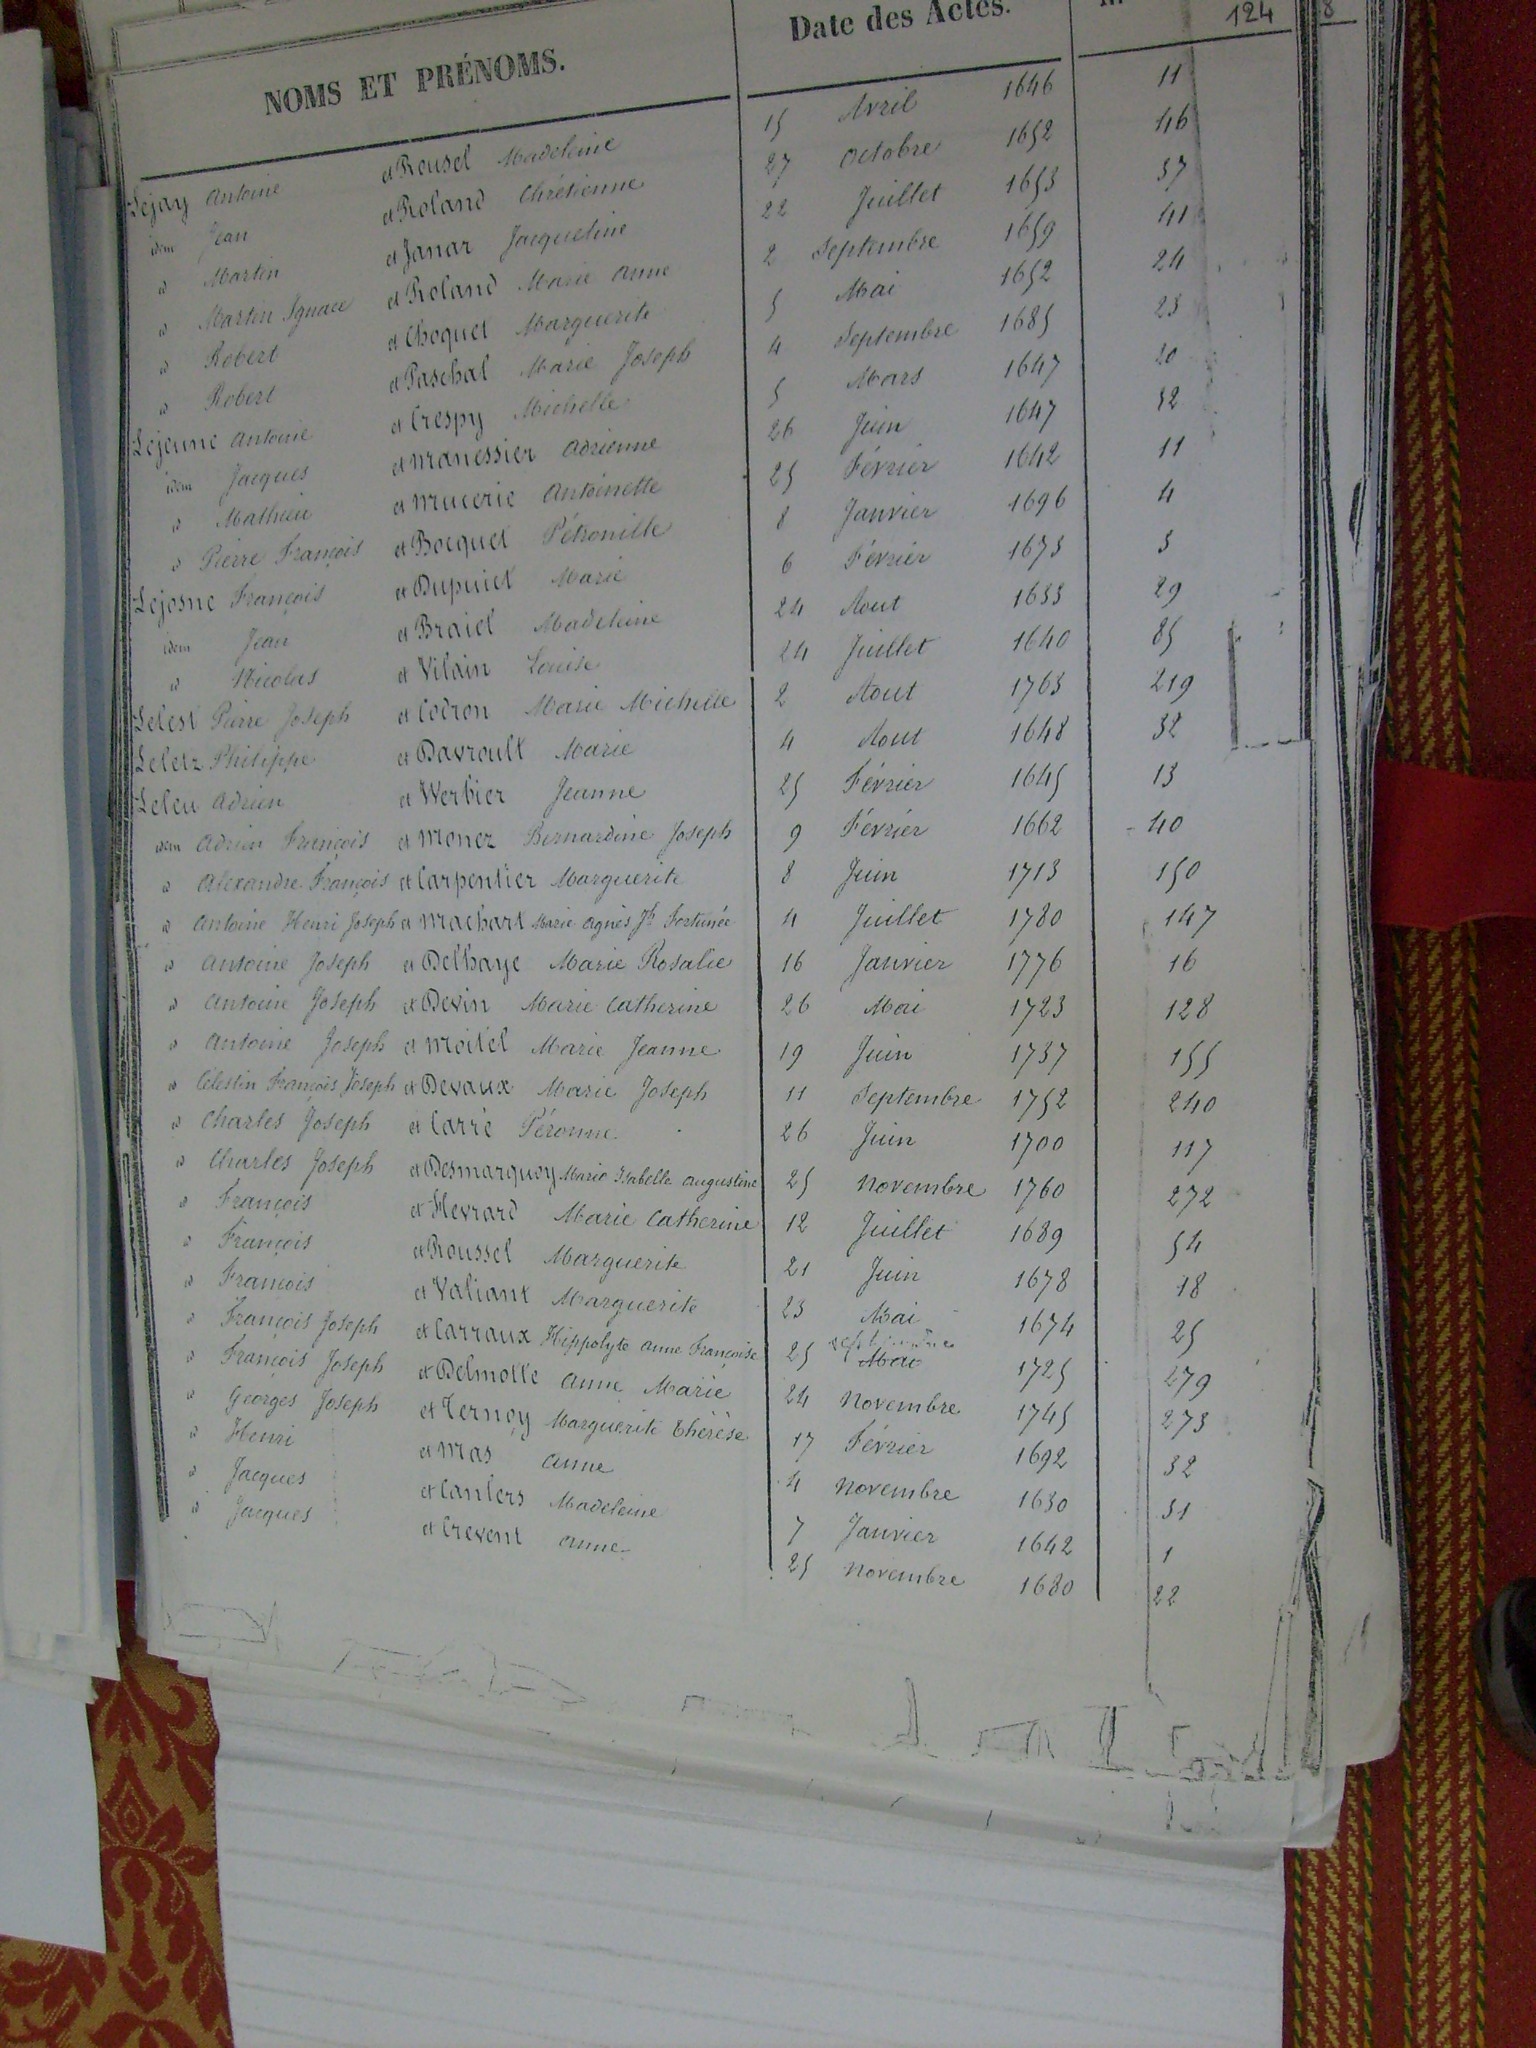 NOMS ET PRÉNOMS. Date des Actes. 124 8
Lejay Antoine et Rousel Madeleine 15 Avril 1646 11
idem Jean et Roland Chrétienne 27 Octobre 1652 46
id Martin et Janar Jacqueline 22 Juillet 1653 37
id Martin Ignace et Roland Marie Anne 2 Septembre 1659 41
id Robert et Choquet Marguerite 5 Mai 1652 24
id Robert et Paschal Marie Joseph 4 Septembre 1685 23
Lejeune Antoine et Crespy Michelle 5 Mars 1647 20
idem Jacques et Manessier Adrienne 26 Juin 1647 32
id Mathieu et Mucerie Antoinette 25 Février 1642 11
id Pierre François et Bocquet Pétronille 8 Janvier 1696 4
Lejosne François et Dupuich Marie 6 Février 1673 3
idem Jean et Braiel Madeleine 24 Aout 1633 29
id Nicolas et Vilain Louise 24 Juillet 1640 85
Lelest Pierre Joseph et Codron Marie Michelle 2 Aout 1763 219
Leletz Philippe et Davroult Marie 4 Aout 1648 32
Leleu Adrien et Werbier Jeanne 25 Février 1645 13
idem Adrien François et Monez Bernardine Joseph 9 Février 1662 40
id Alexandre François et Carpentier Marguerite 8 Juin 1713 150
id Antoine Henri Joseph et Machart Marie Agnès Jh Fortunée 4 Juillet 1780 147
id Antoine Joseph et Delhaye Marie Rosalie 16 Janvier 1776 16
id Antoine Joseph et Devin Marie Catherine 26 Mai 1723 128
id Antoine Joseph et Moitel Marie Jeanne 19 Juin 1737 155
id Célestin François Joseph et Devaux Marie Joseph 11 Septembre 1752 240
id Charles Joseph et Carré Péronne 26 Juin 1700 117
id Charles Joseph et Desmarquoy Marie Isabelle Augustine 25 Novembre 1760 272
id François et Hevrard Marie Catherine 12 Juillet 1689 54
id François et Roussel Marguerite 21 Juin 1678 18
id François et Valiant Marguerite 23 Mai 1674 25
septembre
id François Joseph et Carraux Hippolyte Anne Françoise 25 Mai 1725 279
id François Joseph et Delmotte Anne Marie 24 Novembre 1745 273
id Georges Joseph et Ternoy Marguerite Thérèse 17 Février 1692 32
id Henri et Mas Anne 4 Novembre 1630 31
id Jacques et Canlers Madeleine 7 Janvier 1642 1
id Jacques et Crevent Anne 25 Novembre 1680 22